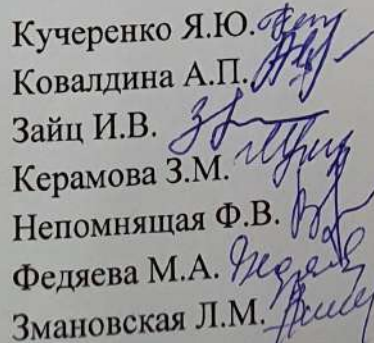 Кучеренко Я.Ю.
Ковалдина А.П.
Зайц И.В.
Керамова З.М.
Непомнящая Ф.В.
Федяева М.А.
Змановская Л.М.